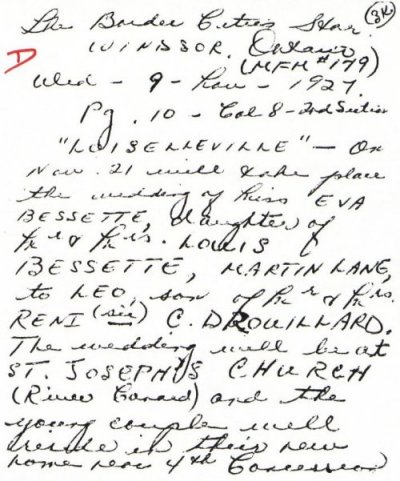 The Border Cities Star (3K)
D WINDSOR, Ontario
(MFM #179)
Wed - 9 - Nov - 1927.
Pg. 10 - Col 8 - 2nd Section
"LOISELLEVILLE" - On
Nov. 21 will take place
the wedding of Miss EVA
BESSETTE, daughter of
Mr & Mrs. LOUIS
BESSETTE, MARTIN LANE,
to LEO, son of Mr & Mrs.
RENI (sic) C. DROUILLARD.
The wedding will be at
ST. JOSEPH'S CHURCH
(River Canard) and the
young couple will
reside in their new
home near 4th Concession